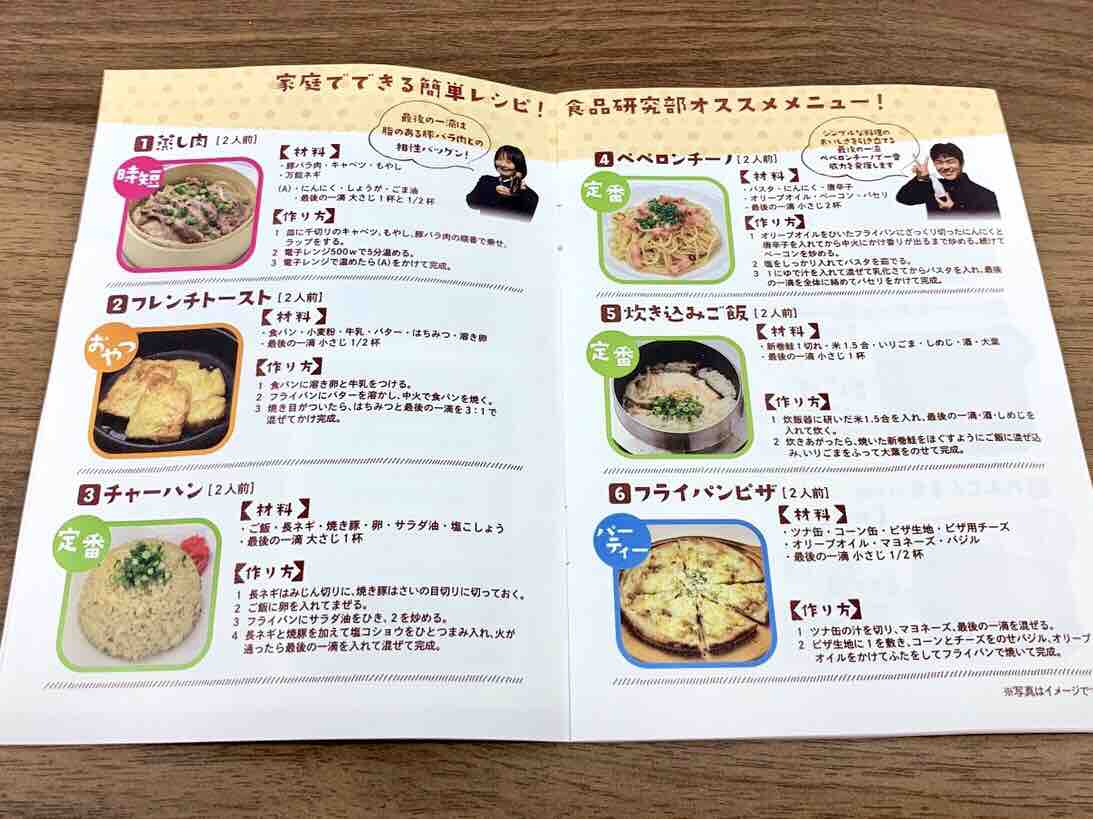 家庭でできる簡単レシピ！
食品研究部オススメメニュー！
最後の一滴は
脂のある豚バラ肉との
相性バツグン！
1 蒸し肉 [2人前]
時短
【材料】
・豚バラ肉・キャベツ・もやし
・万能ネギ
(A)・にんにく・しょうが・ごま油
・最後の一滴 大さじ1杯と1/2杯
【作り方】
1 皿に千切りのキャベツ、もやし、豚バラ肉の順番で乗せ、
ラップをする。
2 電子レンジ500wで5分温める。
3 電子レンジで温めたら(A)をかけて完成。
2 フレンチトースト [2人前]
おやつ
【材料】
・食パン・小麦粉・牛乳・バター・はちみつ・溶き卵
・最後の一滴 小さじ1/2杯
【作り方】
1 食パンに溶き卵と牛乳をつける。
2 フライパンにバターを溶かし、中火で食パンを焼く。
3 焼き目がついたら、はちみつと最後の一滴を3：1で
混ぜてかけ完成。
3 チャーハン [2人前]
定番
【材料】
・ご飯・長ネギ・焼き豚・卵・サラダ油・塩こしょう
・最後の一滴 大さじ1杯
【作り方】
1 長ネギはみじん切りに、焼き豚はさいの目切りに切っておく。
2 ご飯に卵を入れてまぜる。
3 フライパンにサラダ油をひき、2を炒める。
4 長ネギと焼豚を加えて塩コショウをひとつまみ入れ、火が
通ったら最後の一滴を入れて混ぜて完成。
シンプルな料理の
おいしさを引き立てる
最後の一滴
ペペロンチーノで一番
威力を発揮します
4 ペペロンチーノ [2人前]
定番
【材料】
・パスタ・にんにく・唐辛子
・オリーブオイル・ベーコン・パセリ
・最後の一滴 小さじ2杯
【作り方】
1 オリーブオイルをひいたフライパンにざっくり切ったにんにくと
唐辛子を入れてから中火にかけ香りが出るまで炒める。続けて
ベーコンを炒める。
2 塩をしっかり入れてパスタを茹でる。
3 1にゆで汁を入れて混ぜて乳化さてからパスタを入れ、最後
の一滴を全体に絡めてパセリをかけて完成。
5 炊き込みご飯 [2人前]
定番
【材料】
・新巻鮭1切れ・米1.5合・いりごま・しめじ・酒・大葉
・最後の一滴 小さじ1杯
【作り方】
1 炊飯器に研いだ米1.5合を入れ、最後の一滴・酒・しめじを
入れて炊く。
2 炊きあがったら、焼いた新巻鮭をほぐすようにご飯に混ぜ込
み、いりごまをふって大葉をのせて完成。
6 フライパンピザ [2人前]
パーティー
【材料】
・ツナ缶・コーン缶・ピザ生地・ピザ用チーズ
・オリーブオイル・マヨネーズ・バジル
・最後の一滴 小さじ1/2杯
【作り方】
1 ツナ缶の汁を切り、マヨネーズ、最後の一滴を混ぜる。
2 ピザ生地に1を敷き、コーンとチーズをのせバジル、オリーブ
オイルをかけてふたをしてフライパンで焼いて完成。
※写真はイメージで